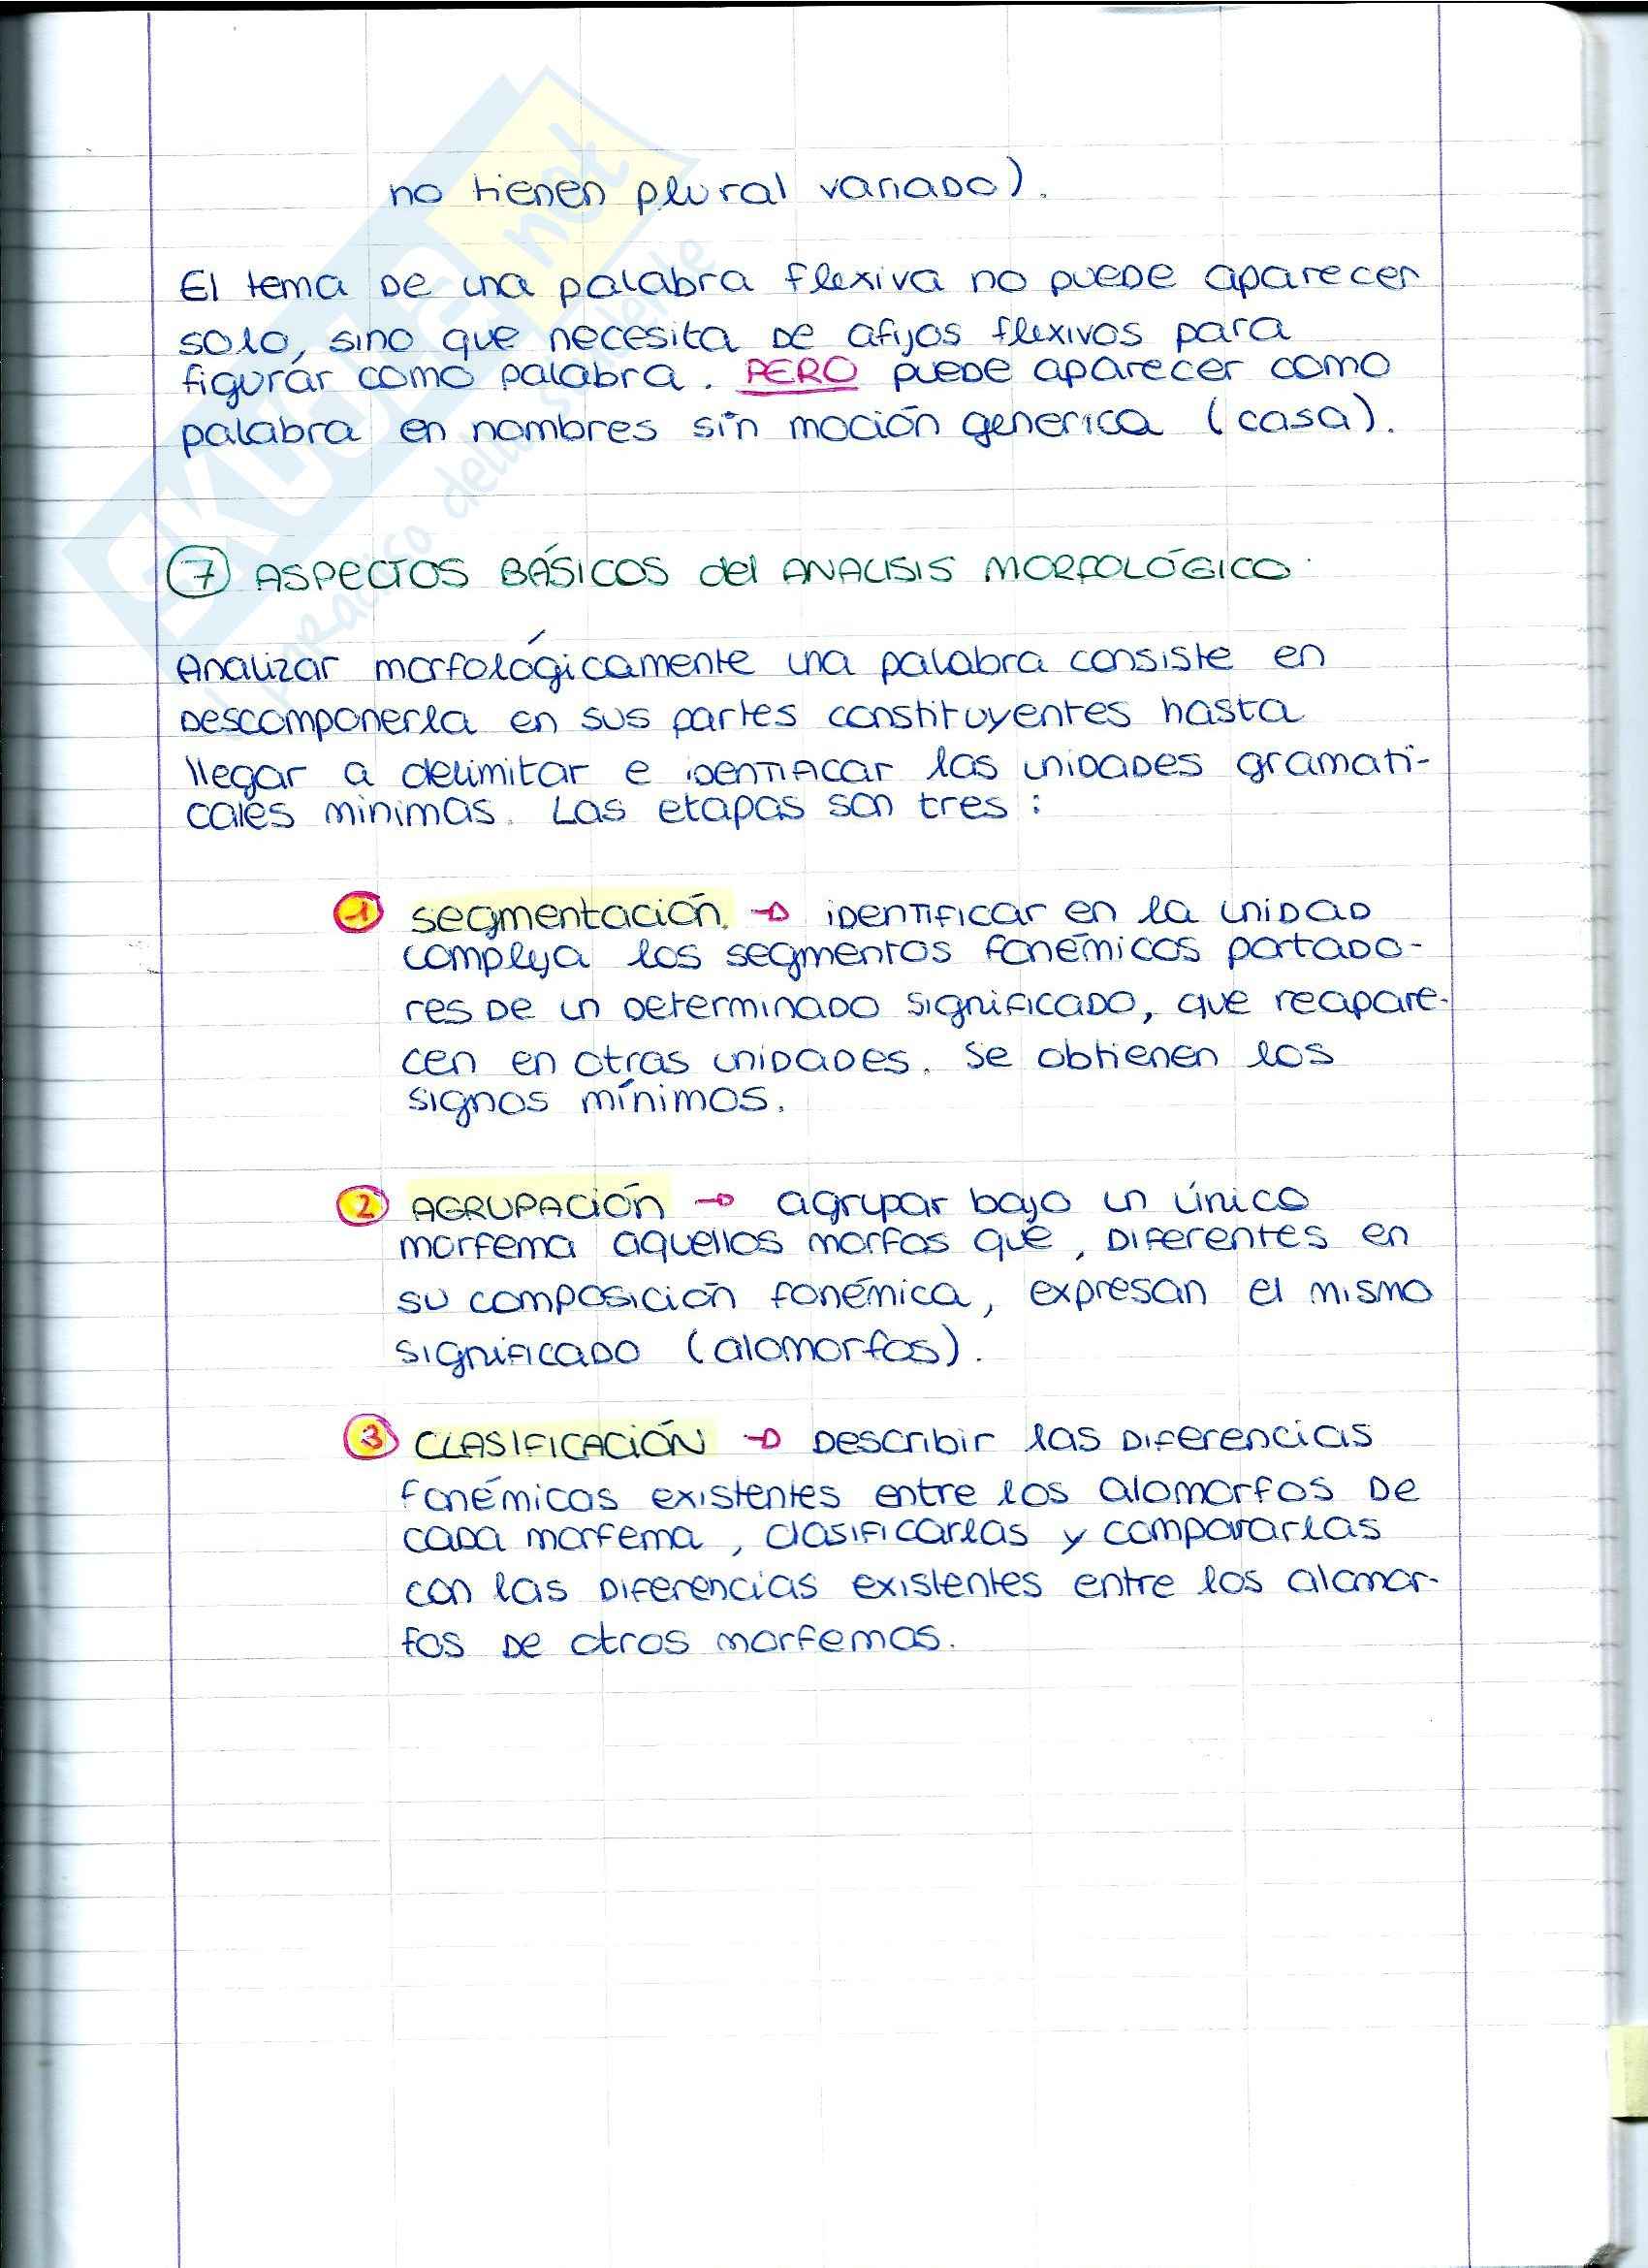 no tienen plural variado).
El tema de una palabra flexiva no puede aparecer
solo, sino que necesita de afijos flexivos para
figurar como palabra. PERO puede aparecer como
palabra en nombres sin moción generica (casa).
7 ASPECTOS BÁSICOS del ANALISIS MORFOLÓGICO
Analizar morfológicamente una palabra consiste en
descomponerla en sus partes constituyentes hasta
llegar a delimitar e identificar las unidades gramati-
cales minimas. Las etapas son tres:
1 segmentación → identificar en la unidad
compleja los segmentos fonémicos portado-
res de un determinado significado, que reapare-
cen en otras unidades. Se obtienen los
signos mínimos.
2 AGRUPACIÓN → agrupar bajo un único
morfema aquellos morfos que, diferentes en
su composición fonémica, expresan el mismo
significado (alomorfos).
3 CLASIFICACIÓN → Describir las diferencias
fonémicas existentes entre los alomorfos de
cada morfema, clasificarlas y compararlas
con las diferencias existentes entre los alomor-
fos de otros morfemas.